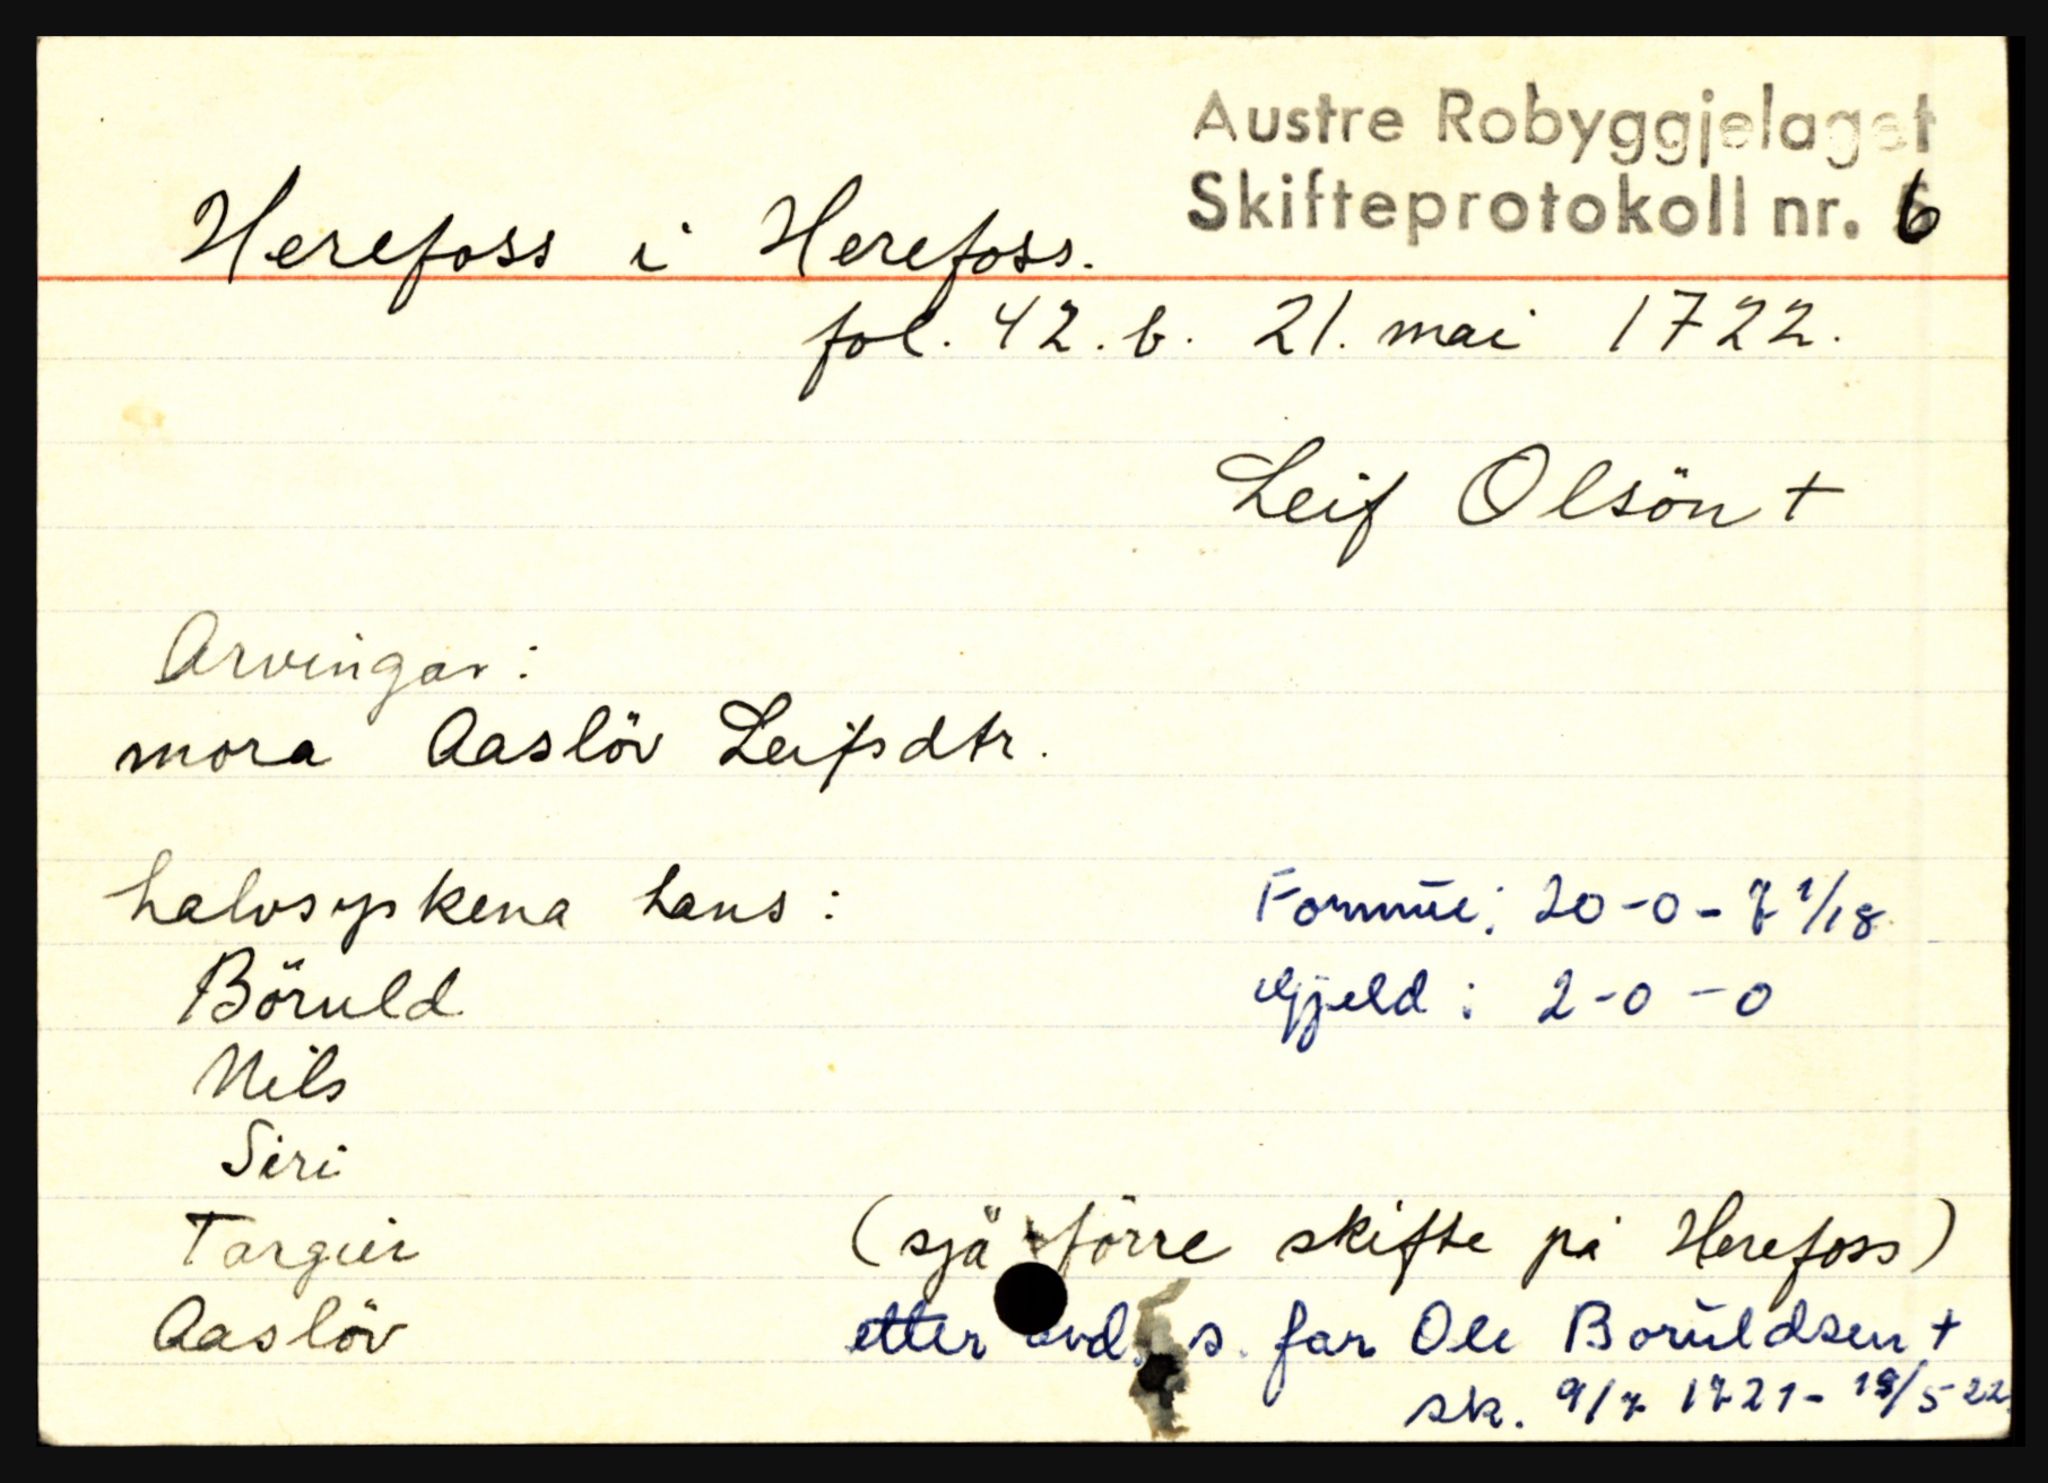 Austre Robyggjelaget
Skifteprotokoll nr. 6
Herefoss i Herefoss.
fol. 42. b. 21. mai 1722.
Leif Olsön +
Arvingar:
mora Aaslöv Leifsdtr.
halvsyskena hans:
Formue: 20-0-7 1/18
Böruld
Gjeld: 2-0-0
Nils
Siri
Targier
(sjå förre skifte på Herefoss)
Aaslöv
etter avd. s. far Ole Boruldsen +
sk. 9/7 1721- 19/5 22.